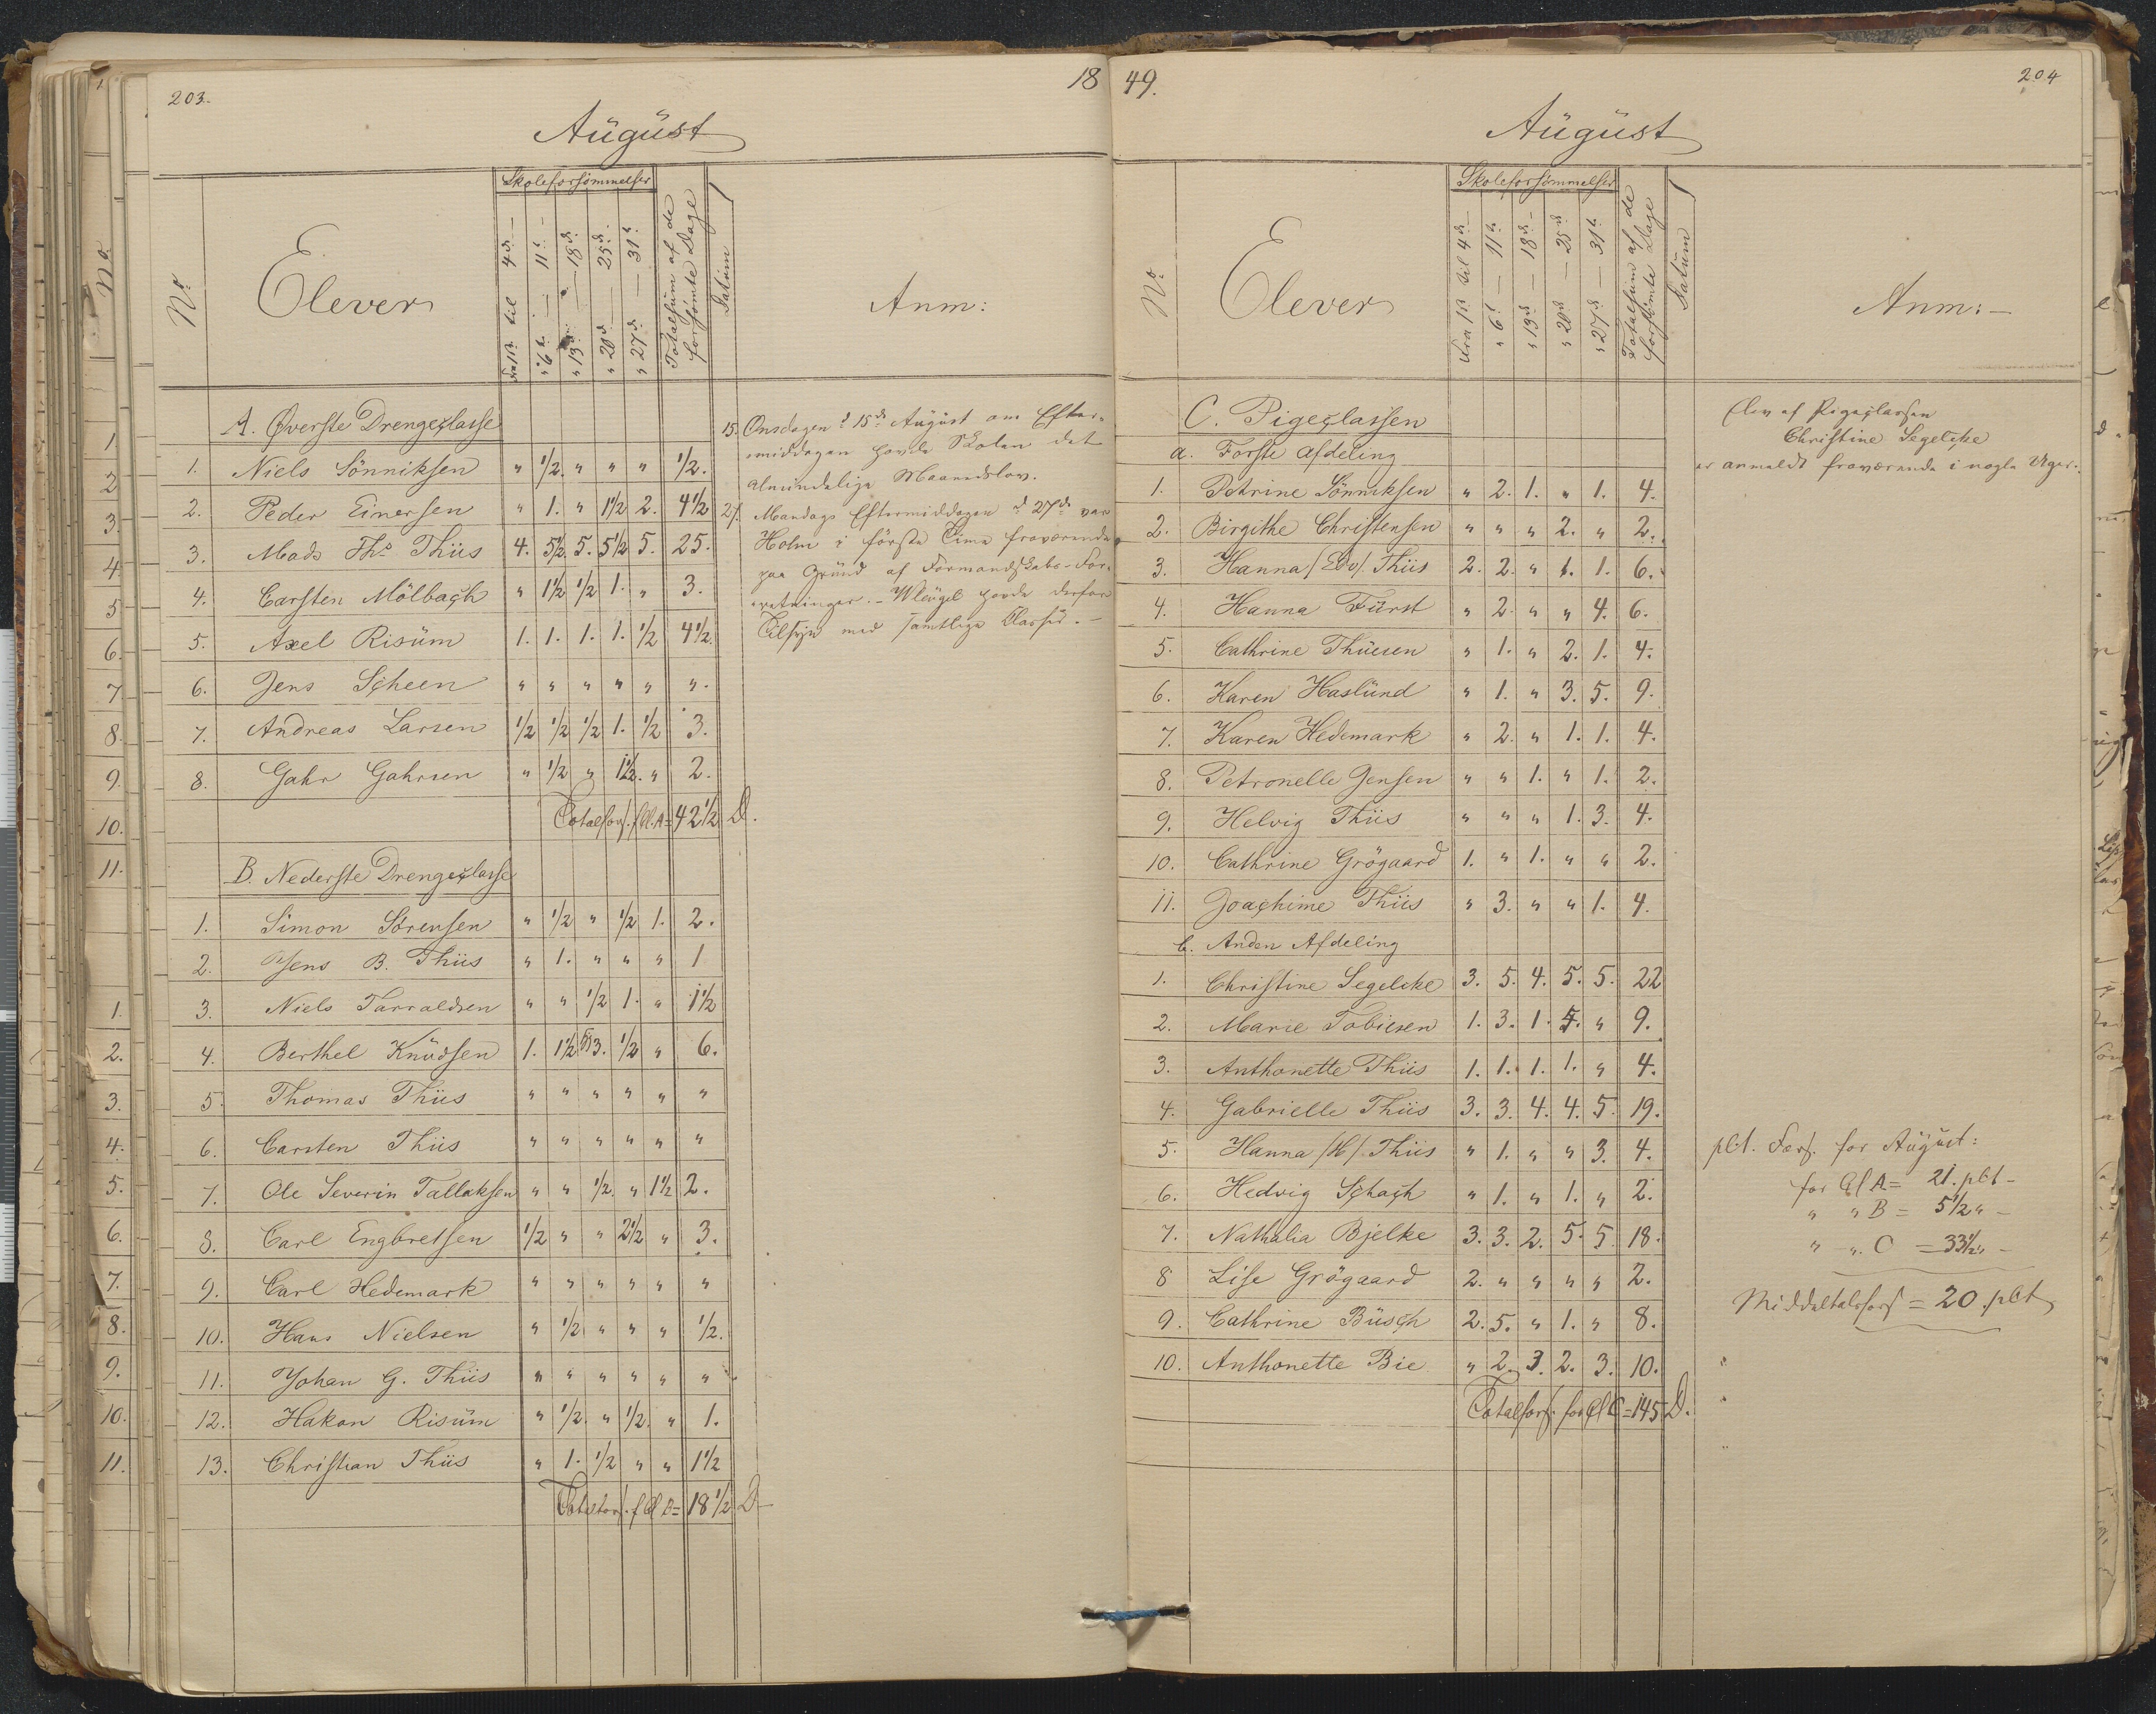 203.
18
August
Skoleforsömmelser
No
Elever
Fra 1ste til 4de —
" 6te — 11te —
" 13de — 18de
" 20de — 25de
" 27de — 31te
Totalsum af de forsömte Dage
Datum
Anm:
A. Øverste Drengeclasse
1. Niels Sönniksen " 1/2. " " " 1/2.
2. Peder Einersen " 1. " 1 1/2 2. 4 1/2
3. Mads Ths Thiis 4. 5 1/2. 5. 5 1/2 5. 25.
4. Carsten Mölbach " 1 1/2 1/2 1. " 3.
5. Axel Risum 1. 1. 1. 1. 1/2 4 1/2.
6. Jens Scheen " " " " " ".
7. Andreas Larsen 1/2 1/2 1/2 1. 1/2 3.
8. Gahr Gahrsen " 1/2 " 1 1/2. " 2.
Totalfors. f Cl. A = 42 1/2 D.
15. Onsdagen d 15de August om Efter-
middagen havde Skolen det
almindelige Maanedslov.
27. Mandags Eftermiddagen d 27de var
Holm i förste Time fraværende
paa Grund af Formandskabs-For-
retninger. – Wleugel havde derfor
Tilsyn med samtlige Classer. –
B. Nederste Drengeclasse
1. Simon Sörensen " 1/2 " 1/2 1. 2.
2. Jens B. Thiis " 1. " " " 1
3. Niels Tarraldsen " " 1/2 1. " 1 1/2
4. Berthel Knudsen 1. 1 1/2 3. 1/2 " 6.
5. Thomas Thiis " " " " " "
6. Carsten Thiis " " " " " "
7. Ole Severin Tallaksen " " 1/2. " 1 1/2 2.
8. Carl Engbretsen 1/2 " " 2 1/2 " 3.
9. Carl Hedemark " " " " " "
10. Hans Nielsen " 1/2 " " " 1/2.
11. Johan G. Thiis " " " " " "
12. Hakon Risum " 1/2. " 1/2. " 1.
13. Christian Thiis " 1. 1/2 " " 1 1/2
Totalfors. f Cl B = 18 1/2 D –
49.
204
August
Skoleforsömmelser
No
Elever
Fra 1ste til 4de
" 6te — 11te
" 13de — 18de —
" 20de — 25de
" 27de — 31te
Totalsum af de forsömte Dage
Datum
Anm: –
C. Pigeclassen
a. Forste Afdeling
1. Petrine Sönniksen " 2. 1. " 1. 4.
2. Birgithe Christensen " " " 2. " 2.
3. Hanna /Edv/. Thiis 2. 2. " 1. 1. 6.
4. Hanna Fürst " 2. " " 4. 6.
5. Cathrine Thuesen " 1. " 2. 1. 4.
6. Karen Haslund " 1. " 3. 5. 9.
7. Karen Hedemark " 2. " 1. 1. 4.
8. Petronelle Jensen " " 1. " 1. 2.
9. Helvig Thiis " " " 1. 3. 4.
10. Cathrine Grögaard 1. " 1. " " 2.
11. Joachime Thiis " 3. " " 1. 4.
b. Anden Afdeling
1. Christine Segelcke 3. 5. 4. 5. 5. 22
2. Marie Tobiesen 1. 3. 1. " 9.
3. Anthonette Thiis 1. 1. 1. 1. " 4.
4. Gabrielle Thiis 3. 3. 4. 4. 5. 19.
5. Hanna /H/. Thiis " 1. " " 3. 4.
6. Hedvig Schach " 1. " 1. " 2.
7. Nathalia Bjelke 3. 3. 2. 5. 5. 18.
8 Lise Grögaard 2. " " " " 2.
9. Cathrine Busch 2. 5. " 1. " 8.
10. Anthonette Bie " 2. 3. 2. 3. 10.
Totalfors. for Cl C = 145 D.
Elev af Pigeclassen
Christine Segelcke
er anmeldt fraværende i nogle Uger.
pCt. Fors. for August:
for Cl A = 21. pCt –
" " B = 5 1/2 " –
" – " C = 33 1/2 " –
Middeltalsfors = 20. pCt